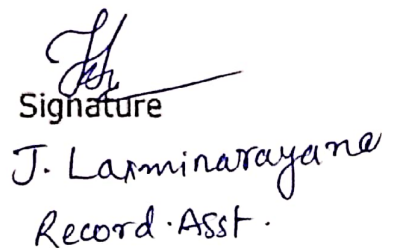 Signature
J. Laxminarayana
Record. Asst.